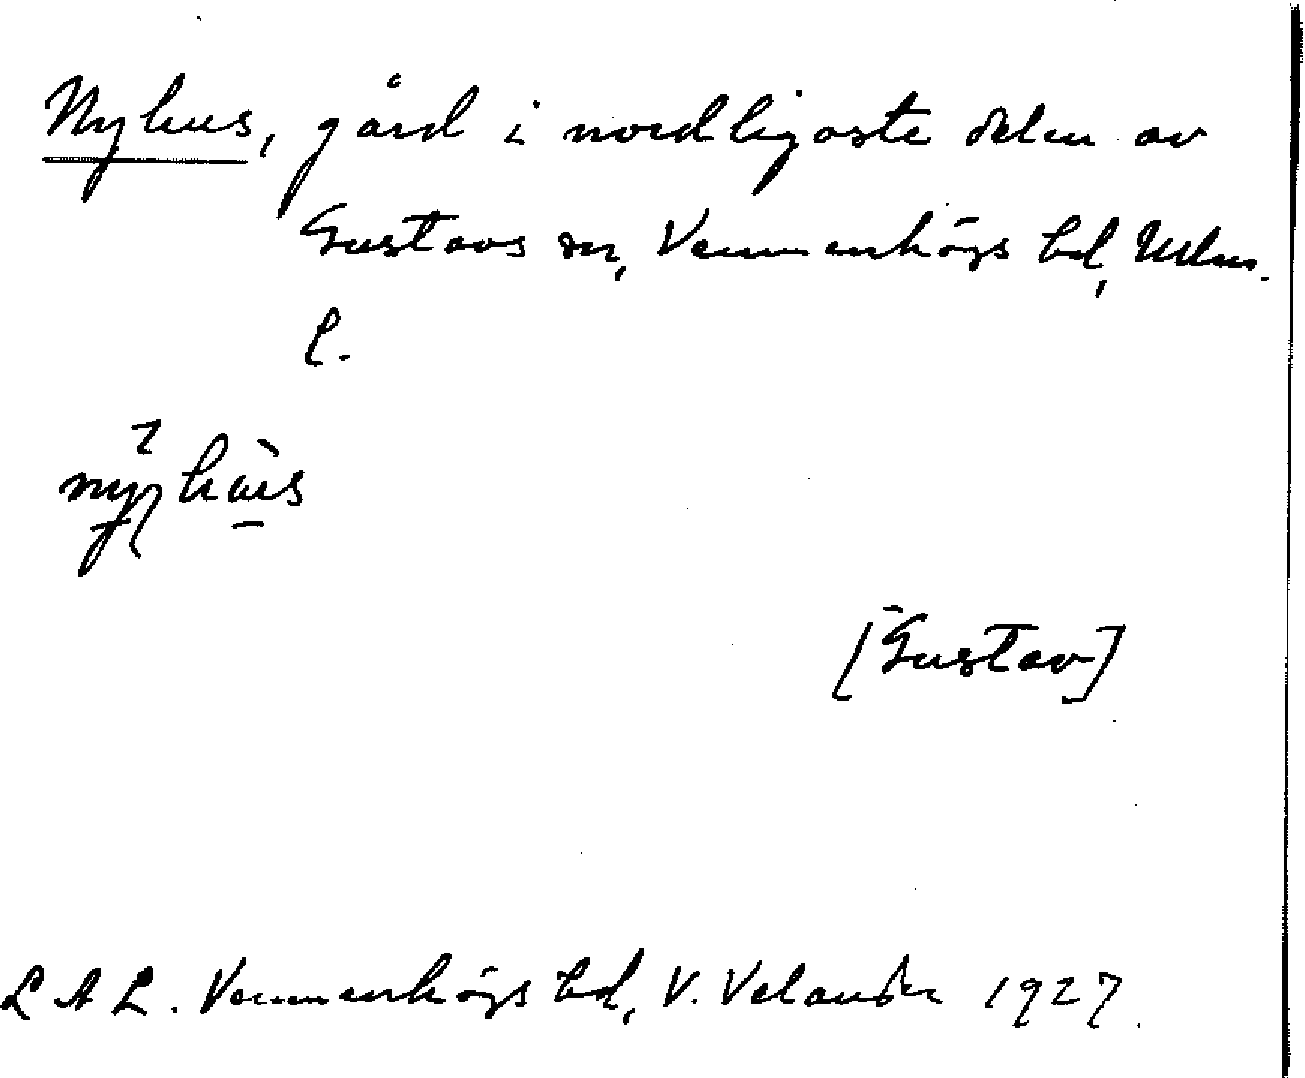 Nyhus, gård i nordligaste delen av
Gustavs sn, Vemmenhögs hd, Mlm.
l.
[Gustav]
L A L. Vemmenhögs hd, V. Velander 1927.